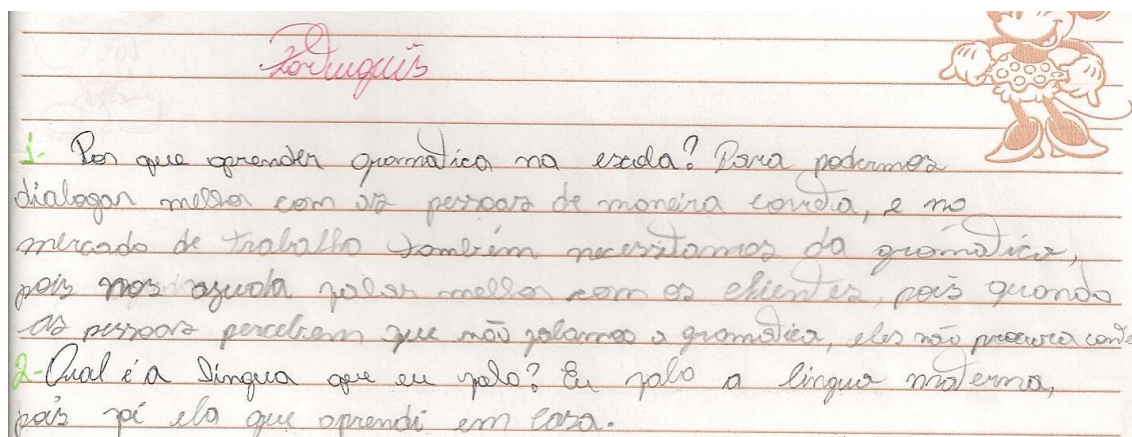 Português
1- Por que aprender gramatica na escola? Para podermos
dialogar melhor com as pessoas de maneira correta, e no
mercado de trabalho também necessitamos da gramática,
pois nos ajuda falar melhor com os clientes, pois quando
as pessoas percebem que não falamos a gramática, eles não procura
2- Qual é a língua que eu falo? Eu falo a língua materna,
pois foi ela que aprendi em casa.